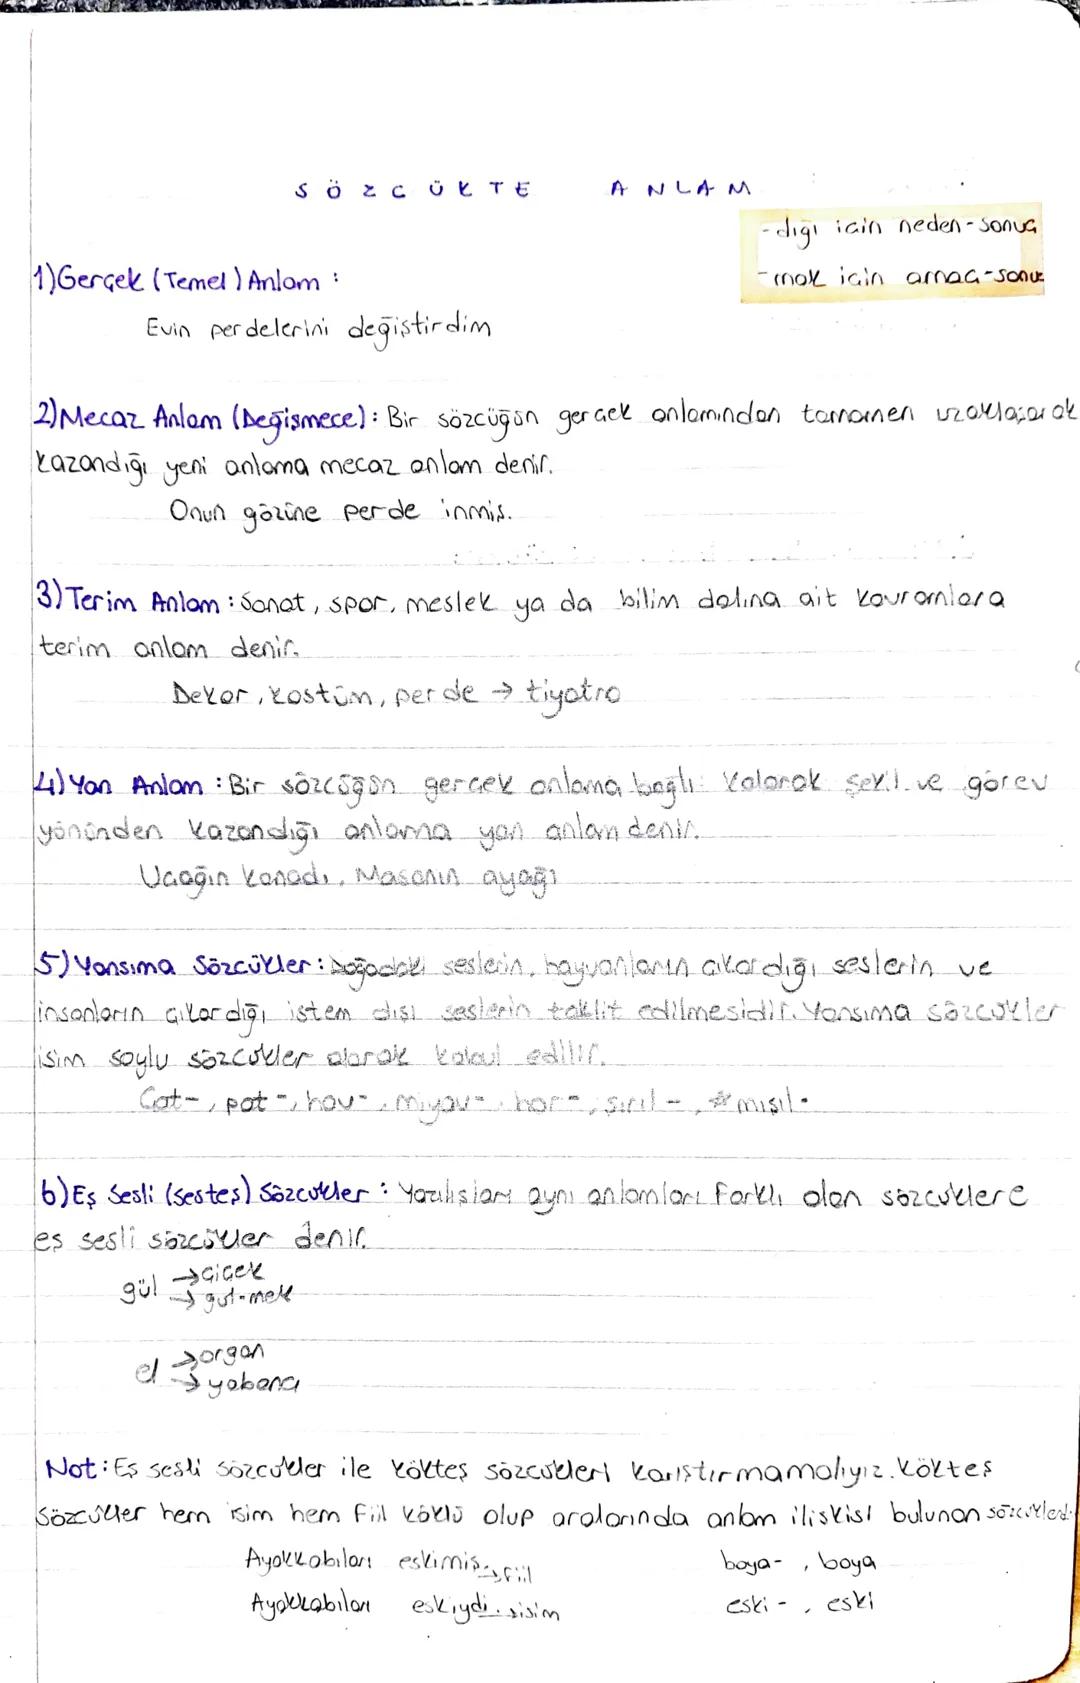 SÖZCÜKTE ANLAM
-dığı için neden-sonuç
-mak için amaç-sonuç
1)Gerçek (Temel) Anlam :
Evin perdelerini değiştirdim
2)Mecaz Anlam (Değişmece): Bir sözcüğün gerçek anlamından tamamen uzaklaşarak
kazandığı yeni anlama mecaz anlam denir.
Onun gözüne perde inmiş.
3)Terim Anlam : Sanat, spor, meslek ya da bilim dalına ait kavramlara
terim anlam denir.
Dekor, kostüm, perde → tiyatro
4)Yan Anlam : Bir sözcüğün gerçek anlama bağlı kalarak şekil ve görev
yönünden kazandığı anlama yan anlam denir.
Uçağın kanadı, Masanın ayağı
5)Yansıma Sözcükler: Doğadaki seslerin, hayvanların çıkardığı seslerin ve
insanların çıkardığı istem dışı seslerin taklit edilmesidir. Yansıma sözcükler
isim soylu sözcükler olarak kabul edilir.
Çat-, pat-, hav-, miyav-, hor-, şırıl-, mışıl-
6)Eş Sesli (Sesteş) Sözcükler : Yazılışları aynı anlamları farklı olan sözcüklere
eş sesli sözcükler denir.
gül → çiçek
→ gül-mek
el → organ
→ yabancı
Not: Eş sesli sözcükler ile kökteş sözcükleri karıştırmamalıyız. Kökteş
sözcükler hem isim hem fiil köklü olup aralarında anlam ilişkisi bulunan
Ayakkabıları eskimiş. → fiil boya- , boya
Ayakkabıları eskiydi. → isim eski- , eski